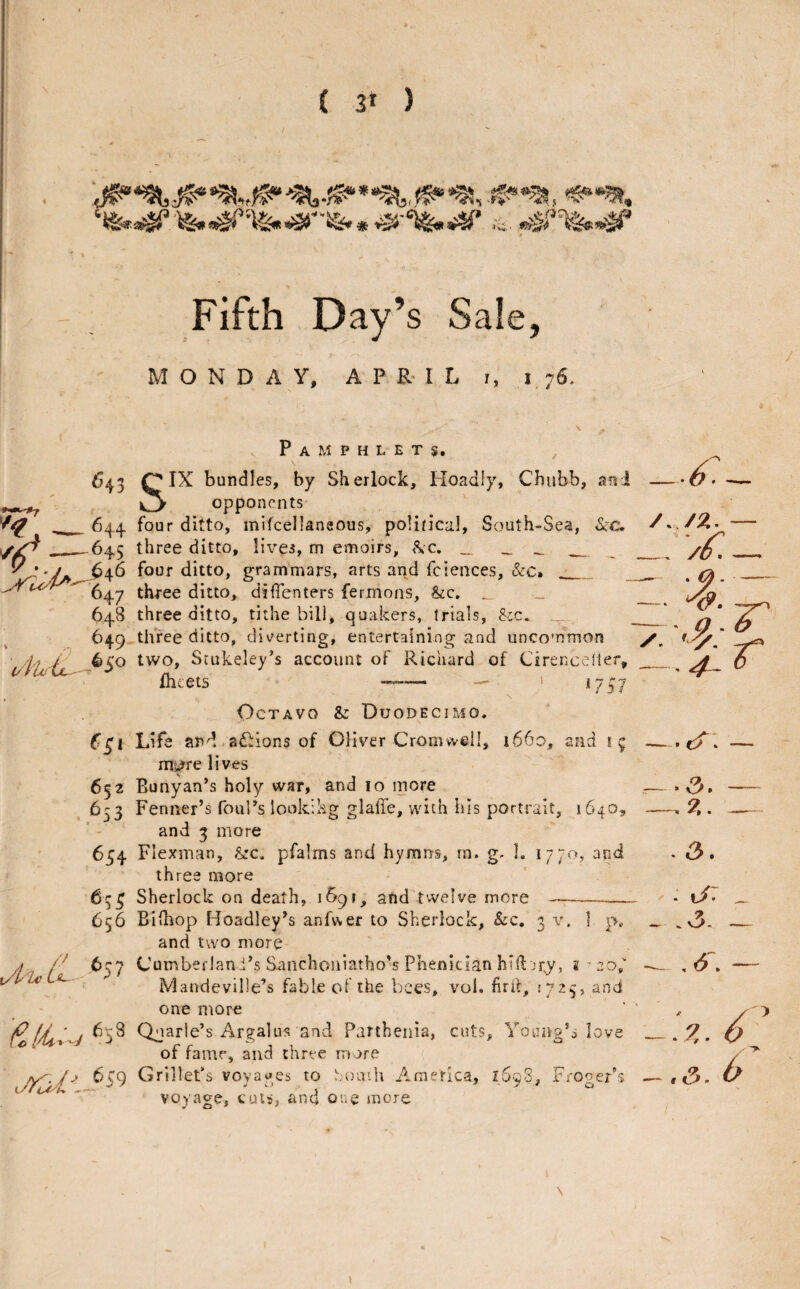 ( 31 )
Fifth Day's Sale,
MONDAY, APRIL 1, 1 76.
PAMPHLETS.
643 SIX bundles, by Sherlock, Hoadly, Chubb, and — . 6 . —
opponents
644 four ditto, miſcellaneous, political, South-Sea, &c. 1 . 12 . —
645 three ditto, lives, m emoirs, &c. — 16 . —
646 four ditto, grammars, arts and ſciences, &c. — . 9 . —
647 three ditto, diſſenters ſermons, &c.
648 three ditto, tithe bill, quakers, trials, &c.
649 three ditto, diverting, entertaining and uncommon
650 two, Stukeley's account of Richard of Cirenceſter, — . 4 . 6
ſheets — 1757
OCTAVO & DUODECIMO.
651 Life and actions of Oliver Cromwell, 1660, and 15
more lives
652 Bunyan's holy war, and 10 more — . 3 . —
653 Fenner's ſoul's looking glaſſe, with his portrait, 1640, — . 2 . —
and 3 more
654 Flexman, &c. pſalms and hymns, m. g. l. 1770, and . 3 .
three more
655 Sherlock on death, 1691, and twelve more
656 Biſhop Hoadley's anſwer to Sherlock, &c. 3 v. l p. — . 3 . —
and two more
657 Cumberland's Sanchoniatho's Phenician hiſtory, 1 20, — . 6 . —
Mandeville's fable of the bees, vol. firſt, 1725, and
one more
658 Quarle's Argalus and Parthenia, cuts, Young's love — . 2 . 6
of fame, and three more
659 Grillet's voyages to South America, 1698, Froger's — . 3 . 6
voyage, cuts, and one more